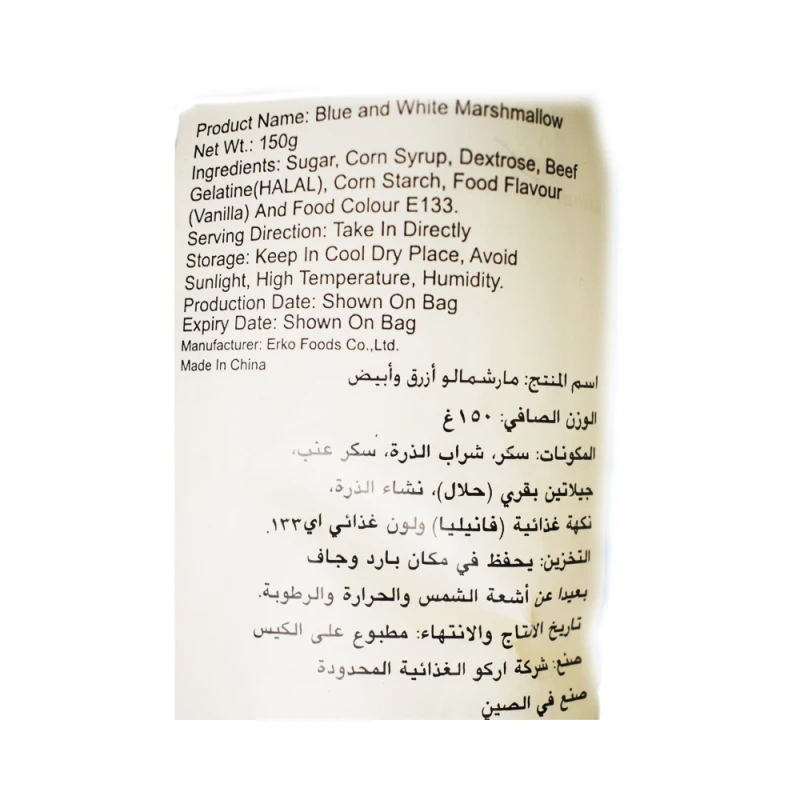 Product Name: Blue and White Marshmallow
Net Wt.: 150g
Ingredients: Sugar, Corn Syrup, Dextrose, Beef
Gelatine(HALAL), Corn Starch, Food Flavour
(Vanilla) And Food Colour E133.
Serving Direction: Take In Directly
Storage: Keep In Cool Dry Place, Avoid
Sunlight, High Temperature, Humidity.
Production Date: Shown On Bag
Expiry Date: Shown On Bag
Manufacturer: Erko Foods Co.,Ltd.
Made In China
اسم المنتج: مارشمالو أزرق وأبيض
الوزن الصافي: ١٥٠غ
المكونات: سكر، شراب الذرة، سكر عنب،
جيلاتين بقري (حلال)، نشاء الذرة،
نكهة غذائية (فانيليا) ولون غذائي اي١٣٣.
التخزين: يحفظ في مكان بارد وجاف
بعيدا عن أشعة الشمس والحرارة والرطوبة.
تاريخ الانتاج والانتهاء: مطبوع على الكيس
صنع: شركة اركو الغذائية المحدودة
صنع في الصين